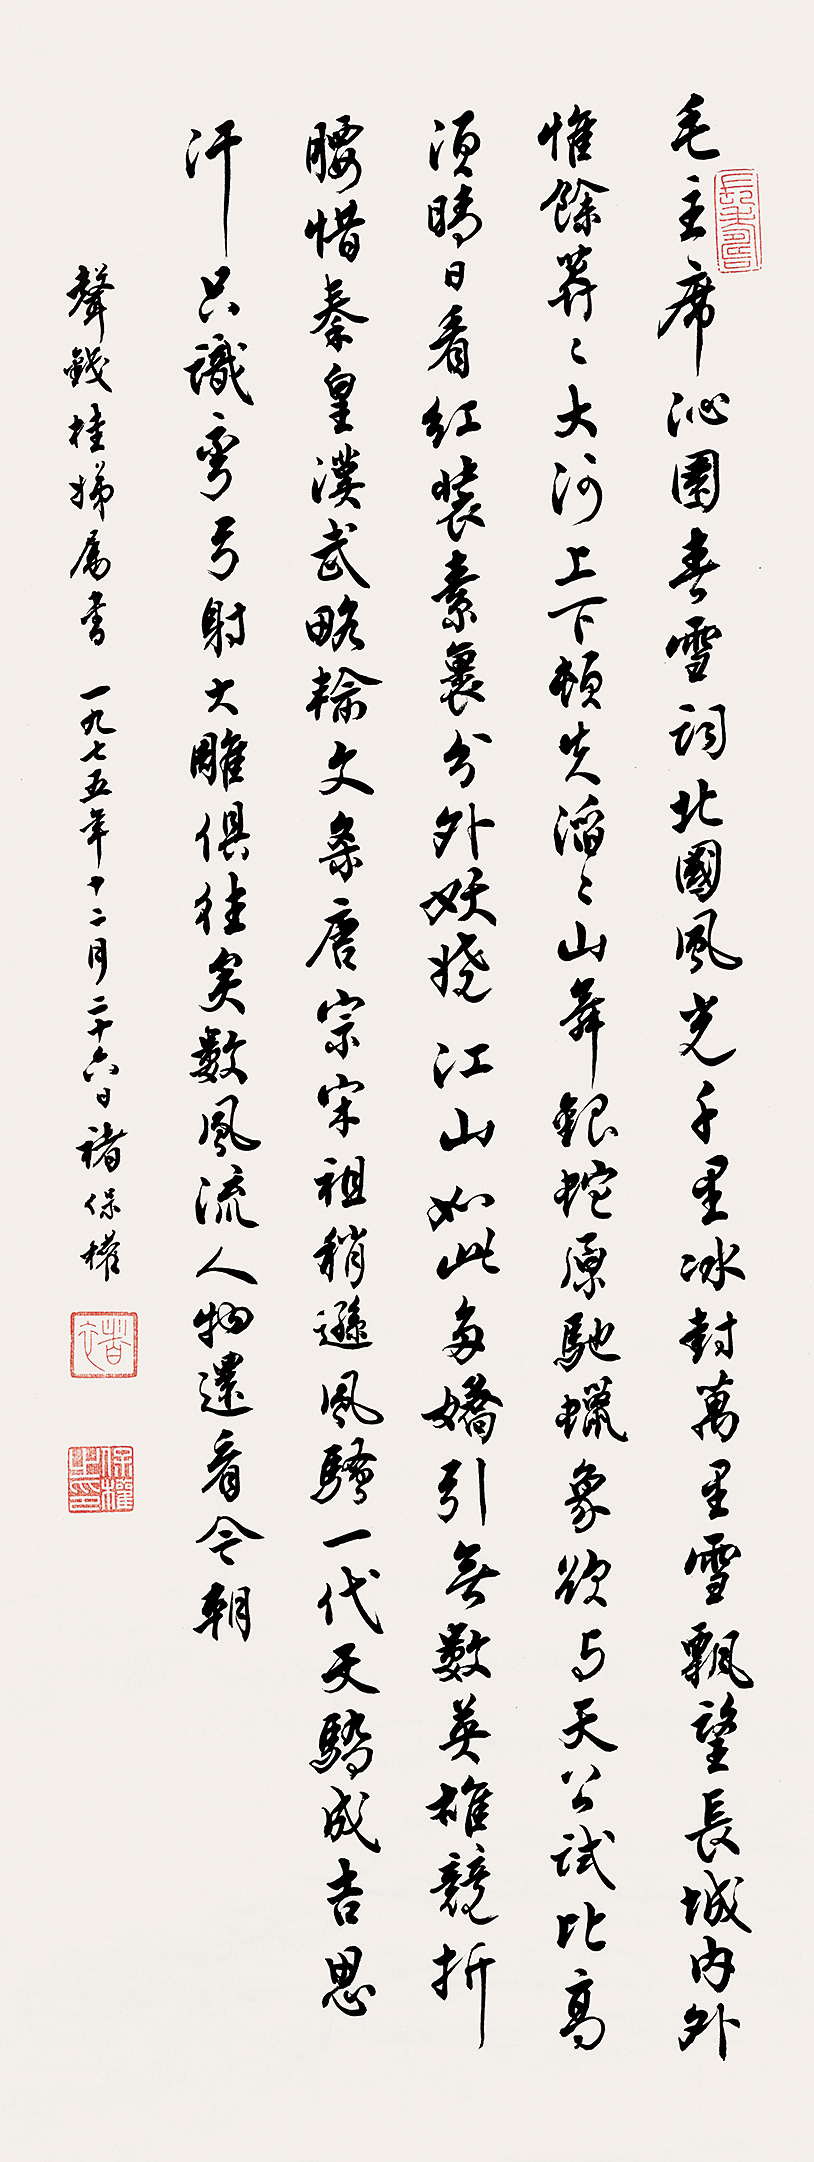 毛主席沁園春雪詞北國風光千里冰封萬里雪飄望長城內外
惟餘莽〻大河上下頓失滔〻山舞銀蛇原馳蠟象欲与天公試比高
須晴日看紅裝素裹分外妖嬈江山如此多嬌引無數英雄競折
腰惜秦皇漢武略輸文采唐宗宋祖稍遜風騷一代天驕成吉思
汗只識彎弓射大雕俱往矣數風流人物還看今朝
聲鉞桂娣属書 一九七五年十二月二十六日褚保權
褚
保權之印